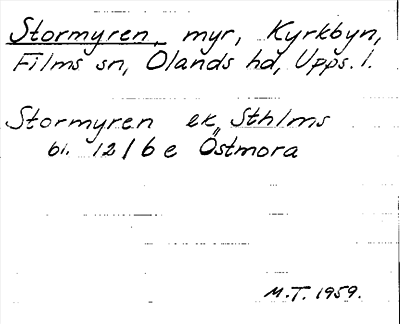 Stormyren, myr, Kyrkbyn,
Films sn, Olands hd, Upps. l.
Stormyren ek, Sthlms
bl. 12/6 e Östmora
M.T. 1959.